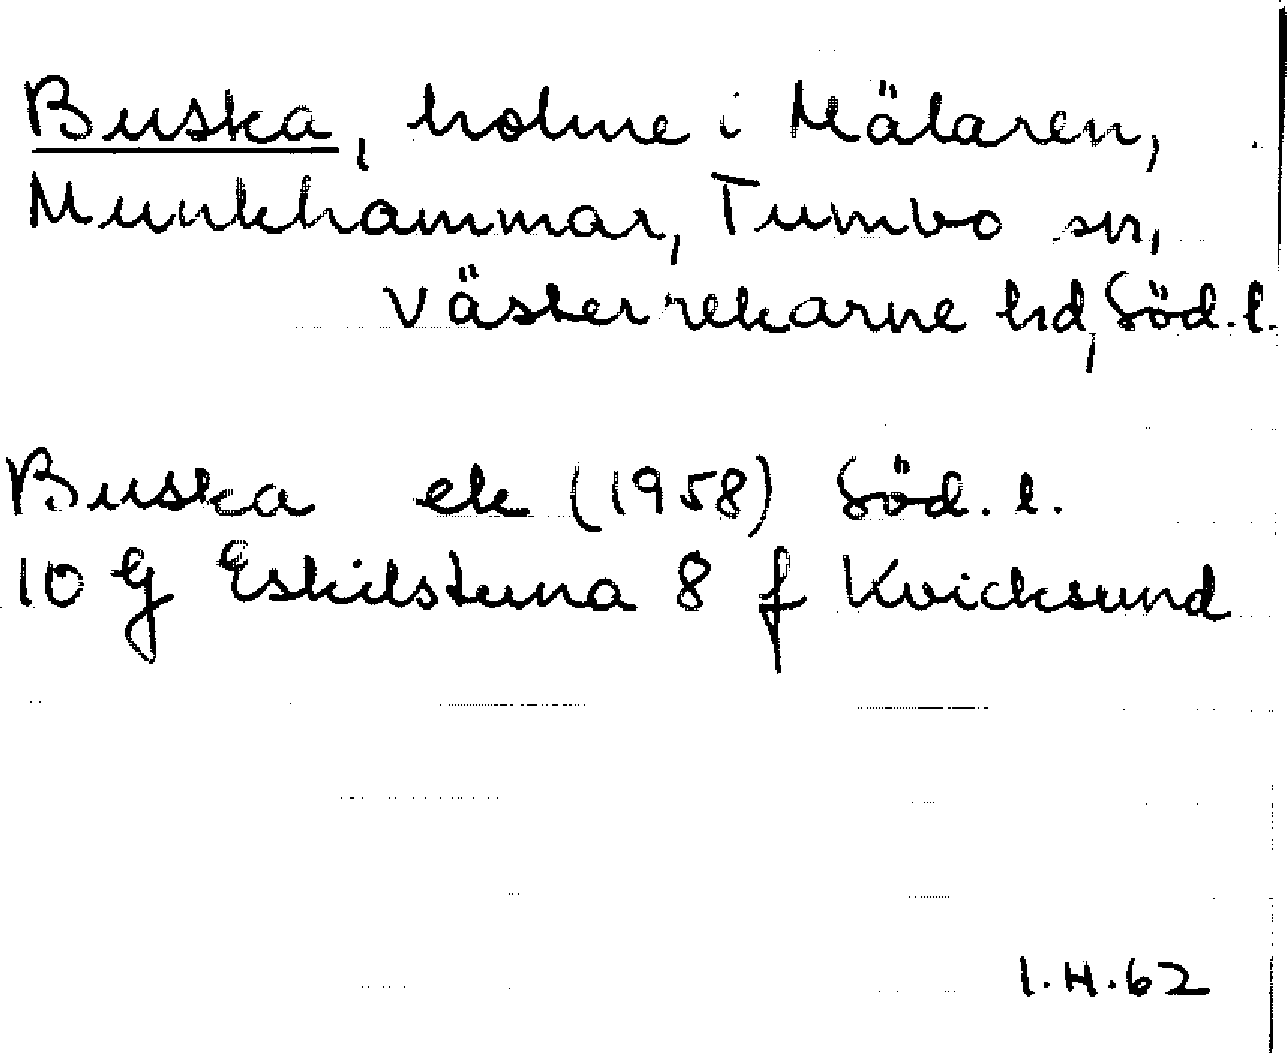 Buska, holme i Mälaren,
Munkhammar, Tumbo sn,
Västerrekarne hd, Söd. l.
Buska ek (1958) Söd. l.
10 G Eskilstuna 8 f Kvicksund
I.H.62